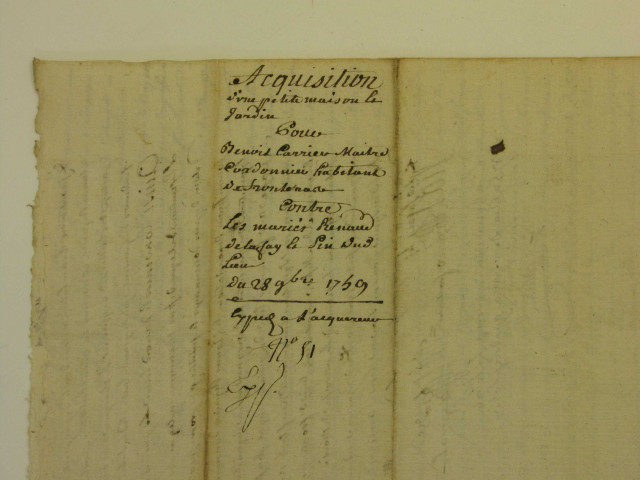 Acquisition
d'vne petite maison le
Jardin
Pour
Benoit Carrier Maitre
Cordonnier habitant
De frontenac
Contre
Les mariés Renaud
delafay le Pin dud.
Lieu
Du 28 9bre 1759
Exped a L'acquereur
No 51